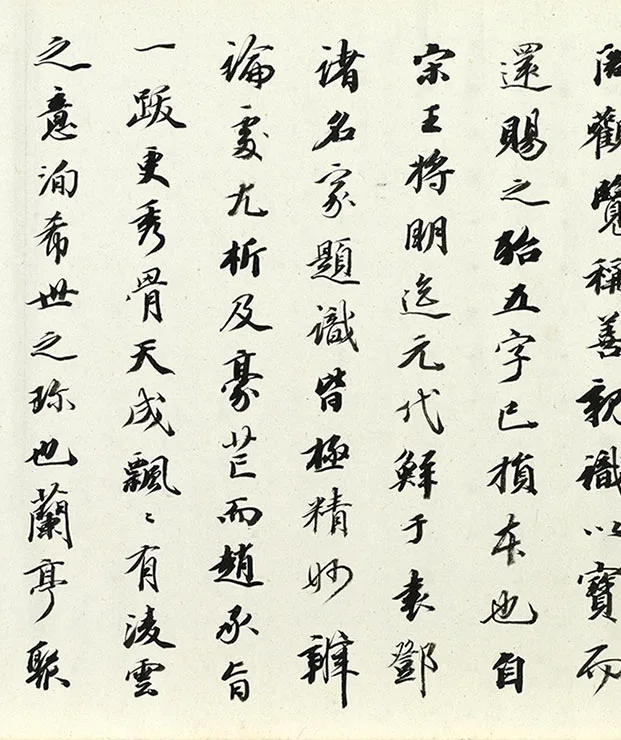 觀覽稱善親識以寶而
還賜之殆五字已損本也自
宋王將明迄元代鮮于袁鄧
諸名家題識皆極精妙辨
論處尤析及豪芒而趙承旨
一跋更秀骨天成飄〻有淩雲
之意洵希世之珎也蘭亭聚